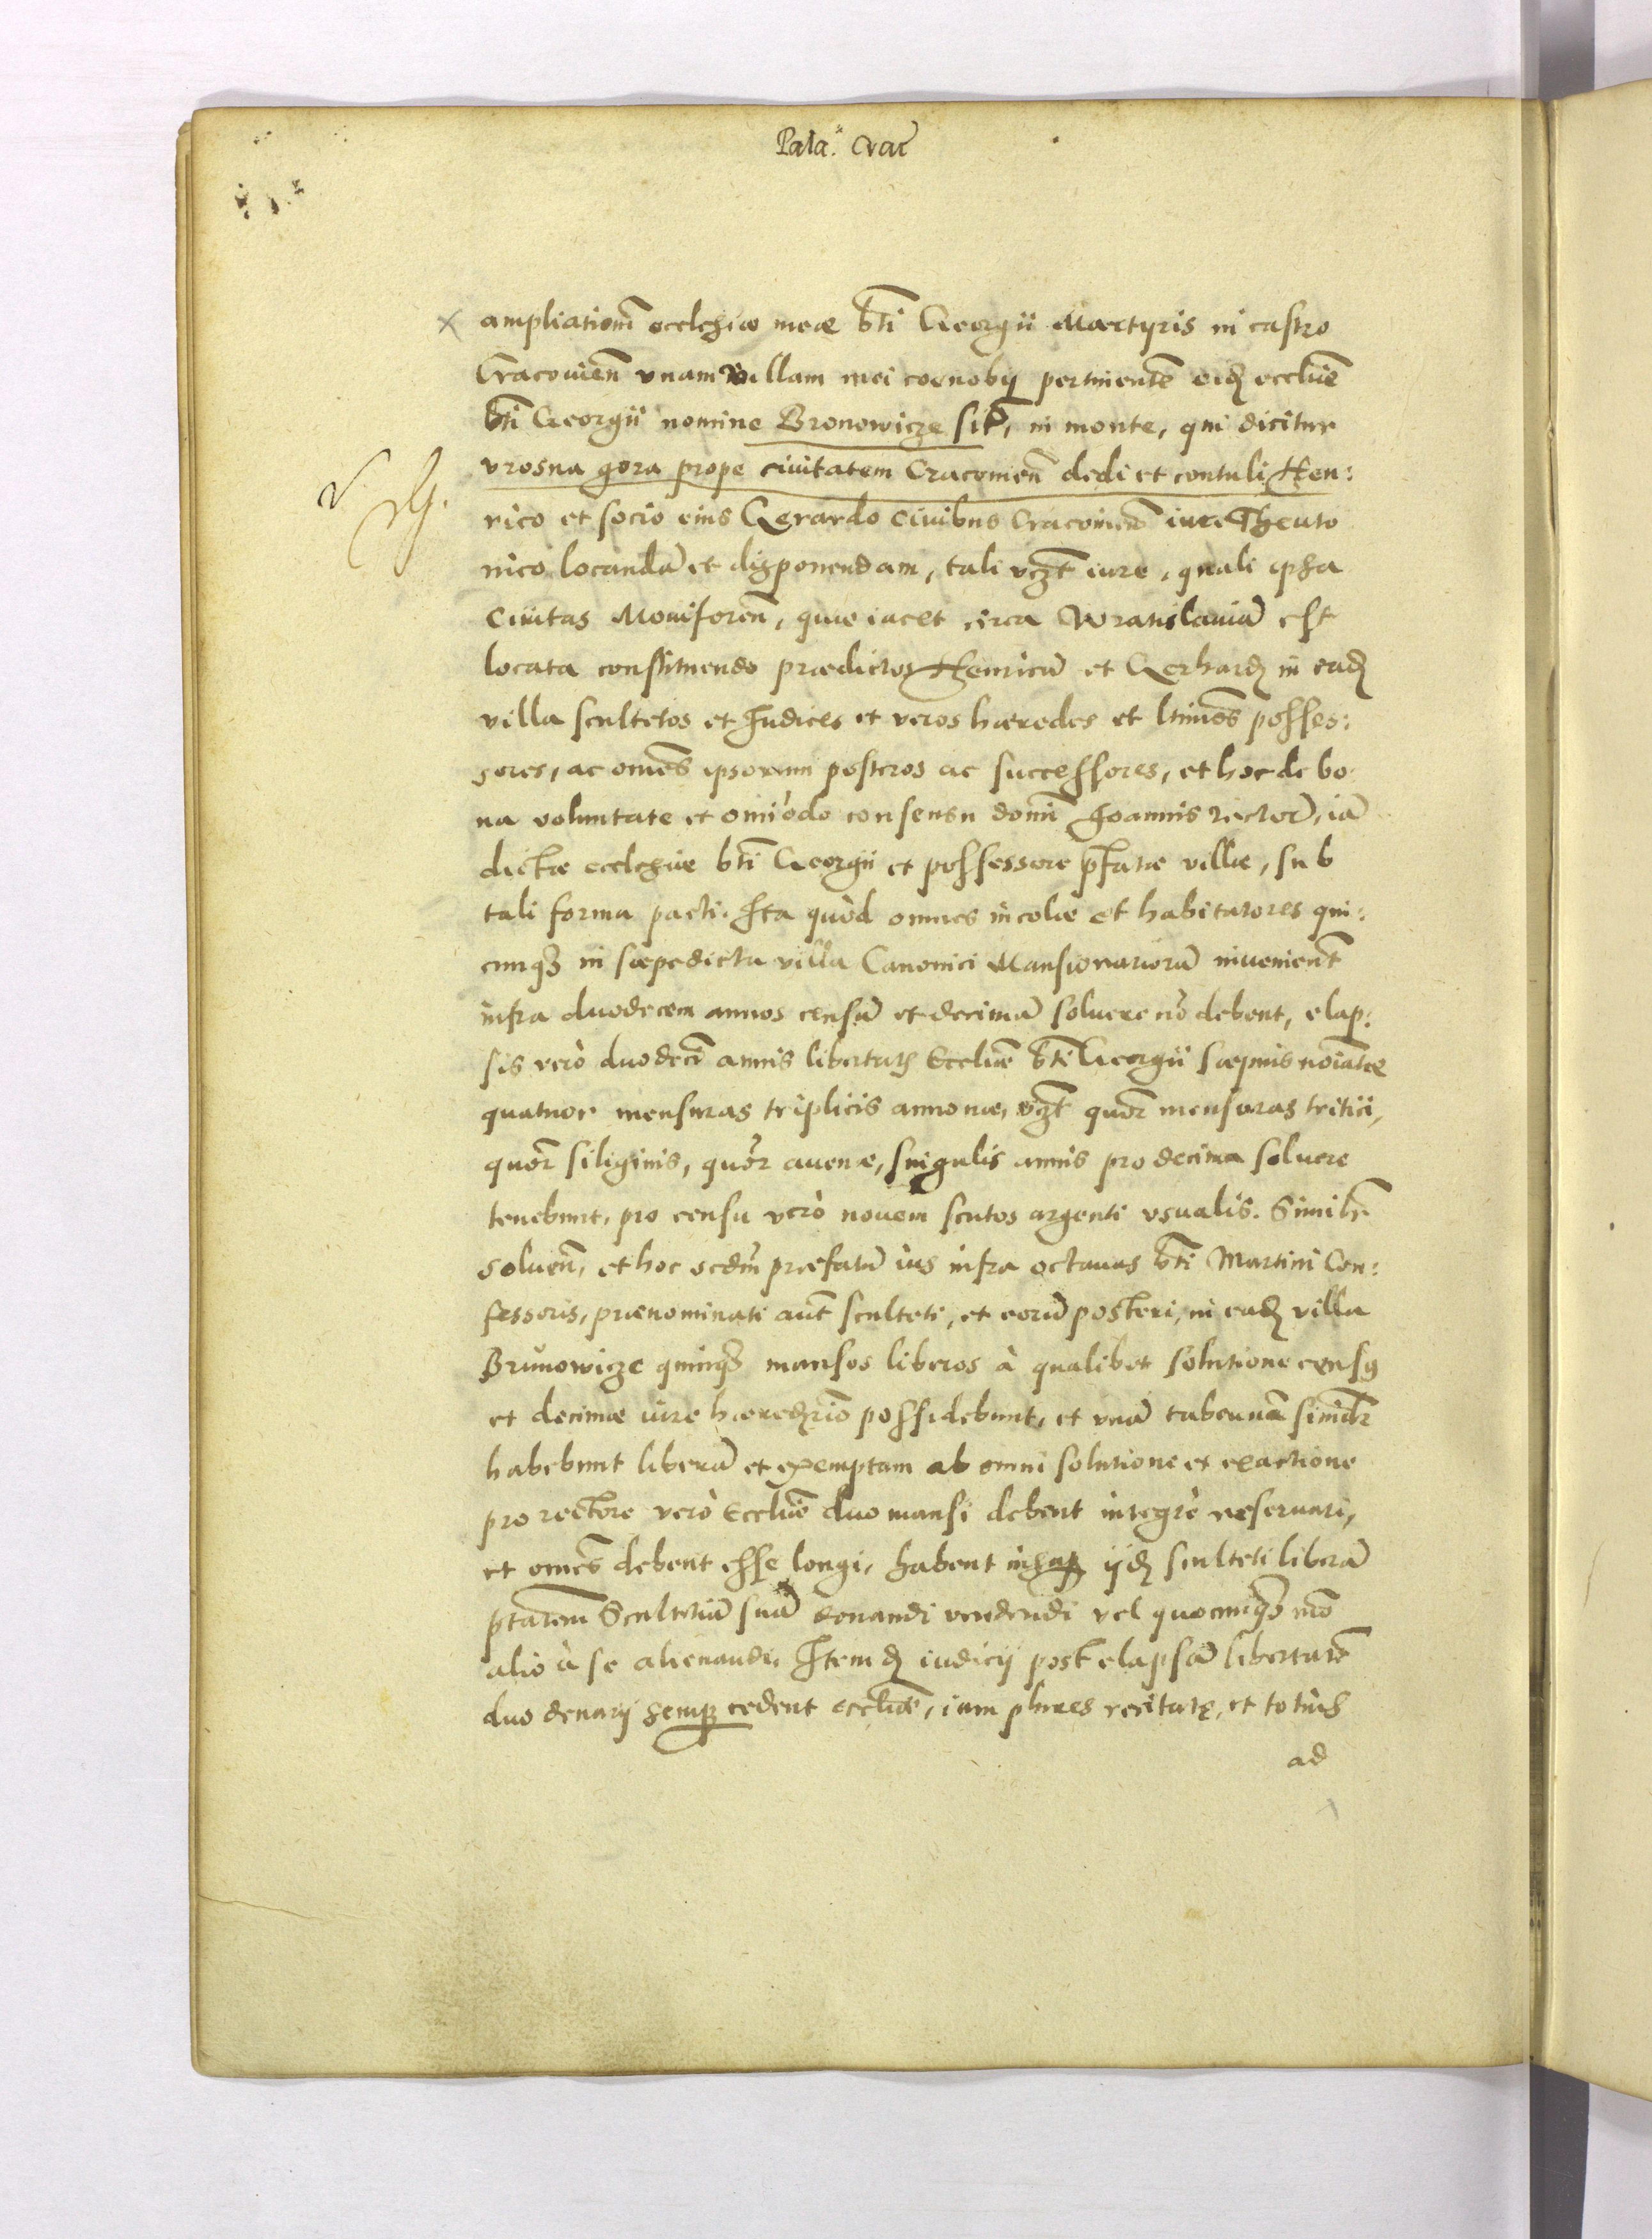 Pala. Crac̄
ampliationē ecclesiæ meæ bti Georgii Martyris in castro
Cracovien̄ vnam villam mei coenobij pertinentē eidẽ eccliæ
bti Georgii nomine Bronowicze sit̄, in monte, qui dicitur
vrosna gora prope civitatem Cracovien̄ dedi et contuli Hen:
rico et socio eius Gerardo civibus Cracovien̄ iure Theuto
nico locandā et disponendam, tali vczt iure, quali ipsa
Civitas Noviforen̄, quæ iacet circa Wratislaviā est
locata constituendo prædictos Henricū et Gerhardū in eadẽ
villa scultetos et Iudices et veros hæredes et ltimos posses:
sores, ac omēs ipsorum posteros ac successores, et hoc de bo
na voluntate et omiodo consensu domī Ioannis rector̄, iā
dictæ ecclesiæ bti Georgii et possessore pfatæ villæ, sub
tali forma pacti. Ita quòd omnes incolæ et habitatores qui:
cunq3 in sæpedicta villa Canonici Mansionariorū invenient̄
infra duodecem annos censū et decimā soluere nō debent, elap:
sis verò duodeci annis libertatis Eccliæ bti Georgii sæpius noīatæ
quatuor mensuras triplicis annonæ, vczt quor̄ mensuras tritici,
quor̄ siliginis, quor̄ auenæ, singulis annis pro decima soluere
tenebunt, pro censu verò novem scutos argenti vsualis. Similr̄
soluen̄, et hoc scdm̄ præfatū ius infra octavas bti Martini Con:
fessoris, prænominati aūt sculteti, et eorū posteri, in eadẽ villa
Brunowicze quinq3 mansos liberos à qualibet solutione censꝰ
et decimæ iure hæredrio possidebunt, et vnā tabernā similr̄
habebunt liberā et exemptam ab omni solutione et exactione
pro rectore verò Eccliæ duo mansi debent integrè reseruari,
et omēs debent esse longi, habent insup ijdẽ sculteti liberā
ptatem Scultetiā suā donandi vendendi vel quocunq3 mō
alio à se alienandi. Item dẽ iudicij post elapsā libertatē
duo denarij semp cedent eccliæ, iam plures recitatę, et totius
ad